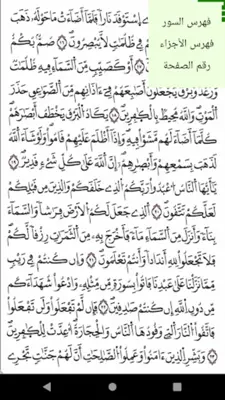 فهرس السور
فهرس الأجزاء
رقم الصفحة
ے اِ۪سْتَوْقَدَ نَاراٗ فَلَمَّآ أَضَآءَتْ مَا حَوْلَهُۥ ذَهَبَ
فِے ظُلُمَٰتٖ لَّا يُبْصِرُونَ ۝ صُمُّۢ بُكْمٌ
أَوْ كَصَيِّبٖ مِّنَ اَ۬لسَّمَآءِ فِيهِ ظُلُمَٰتٞ
وَرَعْدٞ وَبَرْقٞ يَجْعَلُونَ أَصَٰبِعَهُمْ فِےٓ ءَاذَانِهِم مِّنَ اَ۬لصَّوَٰعِقِ حَذَرَ
اَ۬لْمَوْتِۖ وَاللَّهُ مُحِيطُۢ بِالْكٰ۪فِرِينَ ۝ يَكَادُ اُ۬لْبَرْقُ يَخْطَفُ أَبْصَٰرَهُمْ
كُلَّمَآ أَضَآءَ لَهُم مَّشَوْاْ فِيهِۖ وَإِذَآ أَظْلَمَ عَلَيْهِمْ قَامُواْۖ وَلَوْ شَآءَ اَ۬للَّهُ
لَذَهَبَ بِسَمْعِهِمْ وَأَبْصٰ۪رِهِمُۥٓۖ إِنَّ اَ۬للَّهَ عَلَىٰ كُلِّ شَےْءٖ قَدِيرٞۖ ۝
يَٰٓأَيُّهَا اَ۬لنَّاسُ اُ۟عْبُدُواْ رَبَّكُمُ اُ۬لذِے خَلَقَكُمْ وَالذِينَ مِن قَبْلِكُمْ
لَعَلَّكُمْ تَتَّقُونَ ۝ اَ۬لذِے جَعَلَ لَكُمُ اُ۬لْأَرْضَ فِرَٰشاٗ وَالسَّمَآءَ
بِنَآءٗ وَأَنزَلَ مِنَ اَ۬لسَّمَآءِ مَآءٗ فَأَخْرَجَ بِهِۦ مِنَ اَ۬لثَّمَرَٰتِ رِزْقاٗ لَّكُمْۖ
فَلَا تَجْعَلُواْ لِلهِ أَندَاداٗ وَأَنتُمْ تَعْلَمُونَۖ ۝ وَإِن كُنتُمْ فِے رَيْبٖ
مِّمَّا نَزَّلْنَا عَلَىٰ عَبْدِنَا فَأْتُواْ بِسُورَةٖ مِّن مِّثْلِهِۦ وَادْعُواْ شُهَدَآءَكُم
مِّن دُونِ اِ۬للَّهِ إِن كُنتُمْ صَٰدِقِينَۖ ۝ فَإِن لَّمْ تَفْعَلُواْ وَلَن تَفْعَلُواْ
فَاتَّقُواْ اُ۬لنَّارَ اَ۬لتِے وَقُودُهَا اَ۬لنَّاسُ وَالْحِجَارَةُۖ أُعِدَّتْ لِلْكٰ۪فِرِينَۖ ۝
وَبَشِّرِ اِ۬لذِينَ ءَامَنُواْ وَعَمِلُواْ اُ۬لصَّٰلِحَٰتِ أَنَّ لَهُمْ جَنَّٰتٖ تَجْرِے